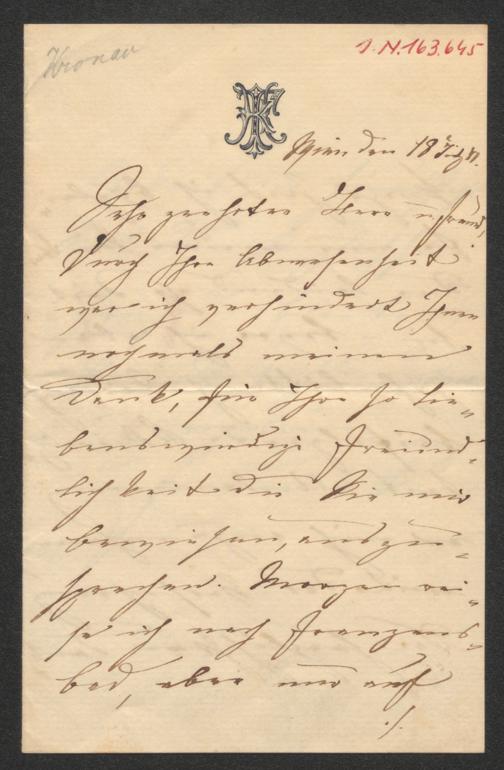 Kronau
I.N. 163.645
Wien den 18
Sehr geehrter Herr u. Freund,
Durch Ihre Abwesenheit
war ich verhindert Ihnen
nochmals meinen
Dank, für Ihre so lie-
benswürdige Freund-
lichkeit die Sie mir
bewiesen, auszu-
sprechen. Morgen rei-
se ich nach Franzens-
bad, aber nur auf
./.